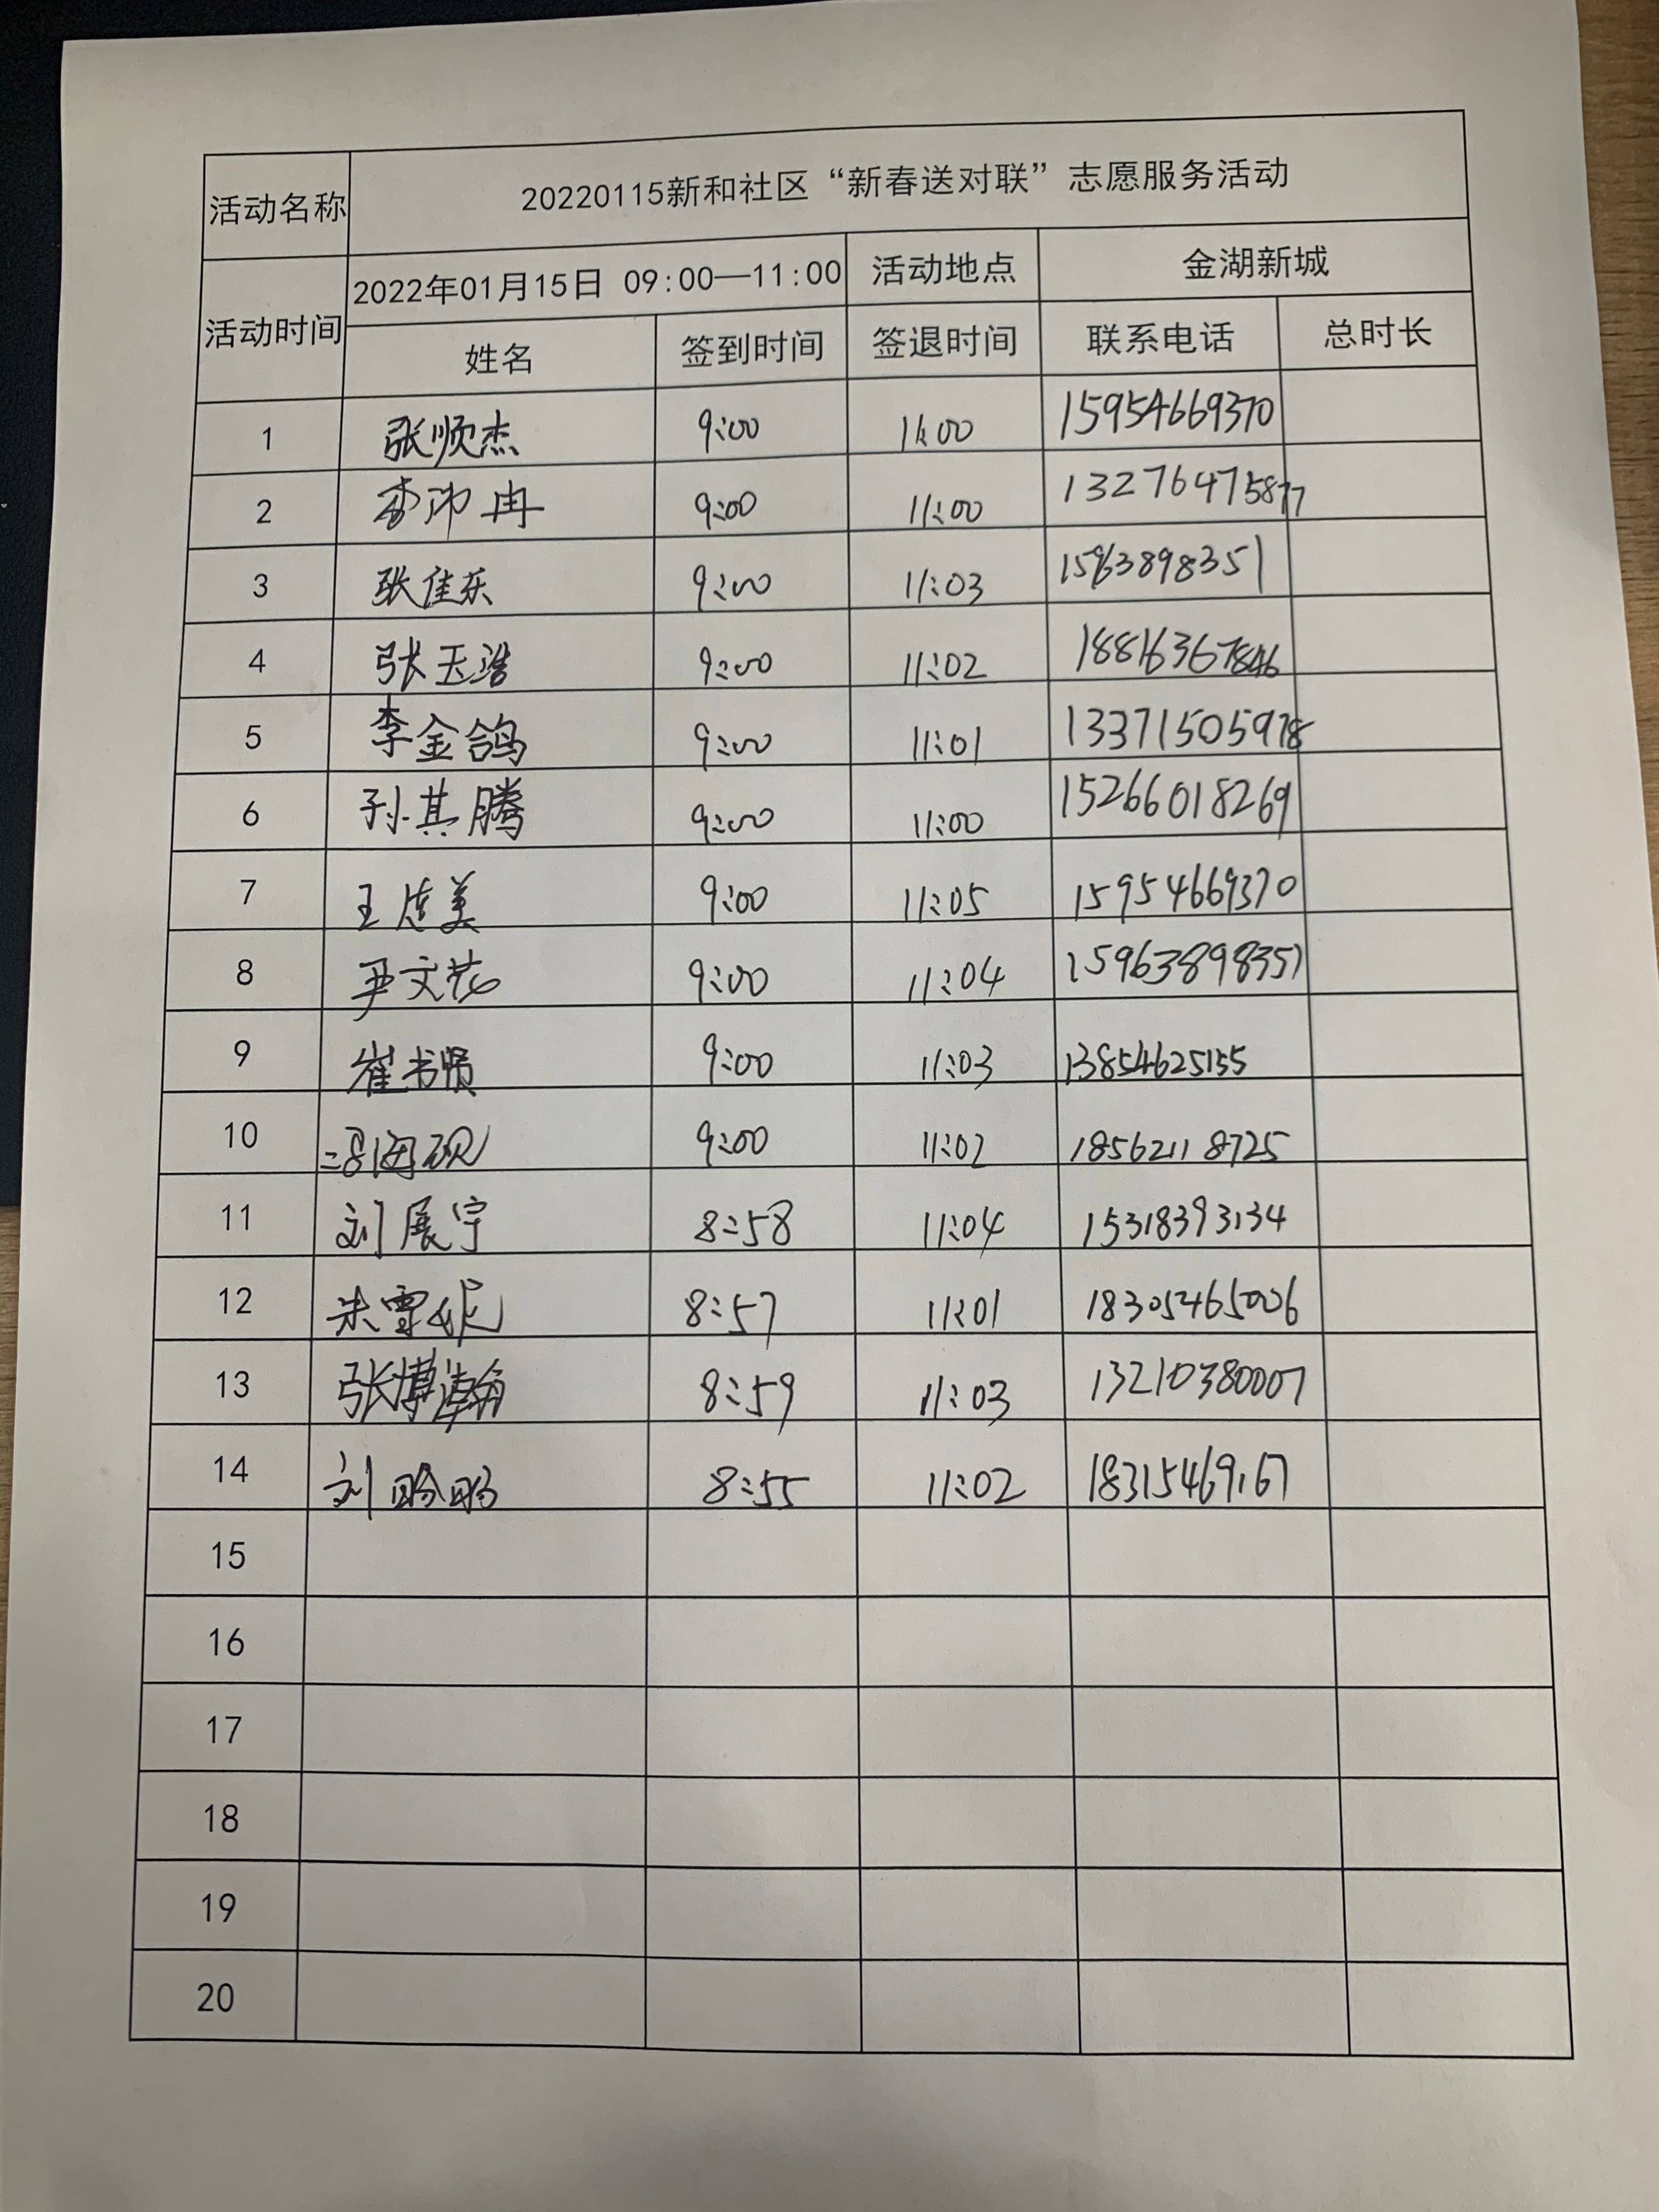 活动名称 20220115新和社区“新春送对联”志愿服务活动
活动时间 2022年01月15日 09:00—11:00 活动地点 金湖新城
姓名 签到时间 签退时间 联系电话 总时长
1 张顺杰 9:00 11:00 15954669370
2 李沛冉 9:00 11:00 13276475877
3 张佳乐 9:00 11:03 15963898351
4 张玉浩 9:00 11:02 18816367846
5 李金鸽 9:00 11:01 13371505978
6 孙其腾 9:00 11:00 15266018269
7 王连美 9:00 11:05 15954669370
8 尹文花 9:00 11:04 15963898351
9 崔书贤 9:00 11:03 13854625155
10 9:00 11:02 18562118725
11 刘展宇 8:58 11:04 15318393134
12 朱雪妮 8:57 11:01 18305465006
13 张博瀚 8:59 11:03 13210380007
14 刘 8:55 11:02 18315469167
15
16
17
18
19
20